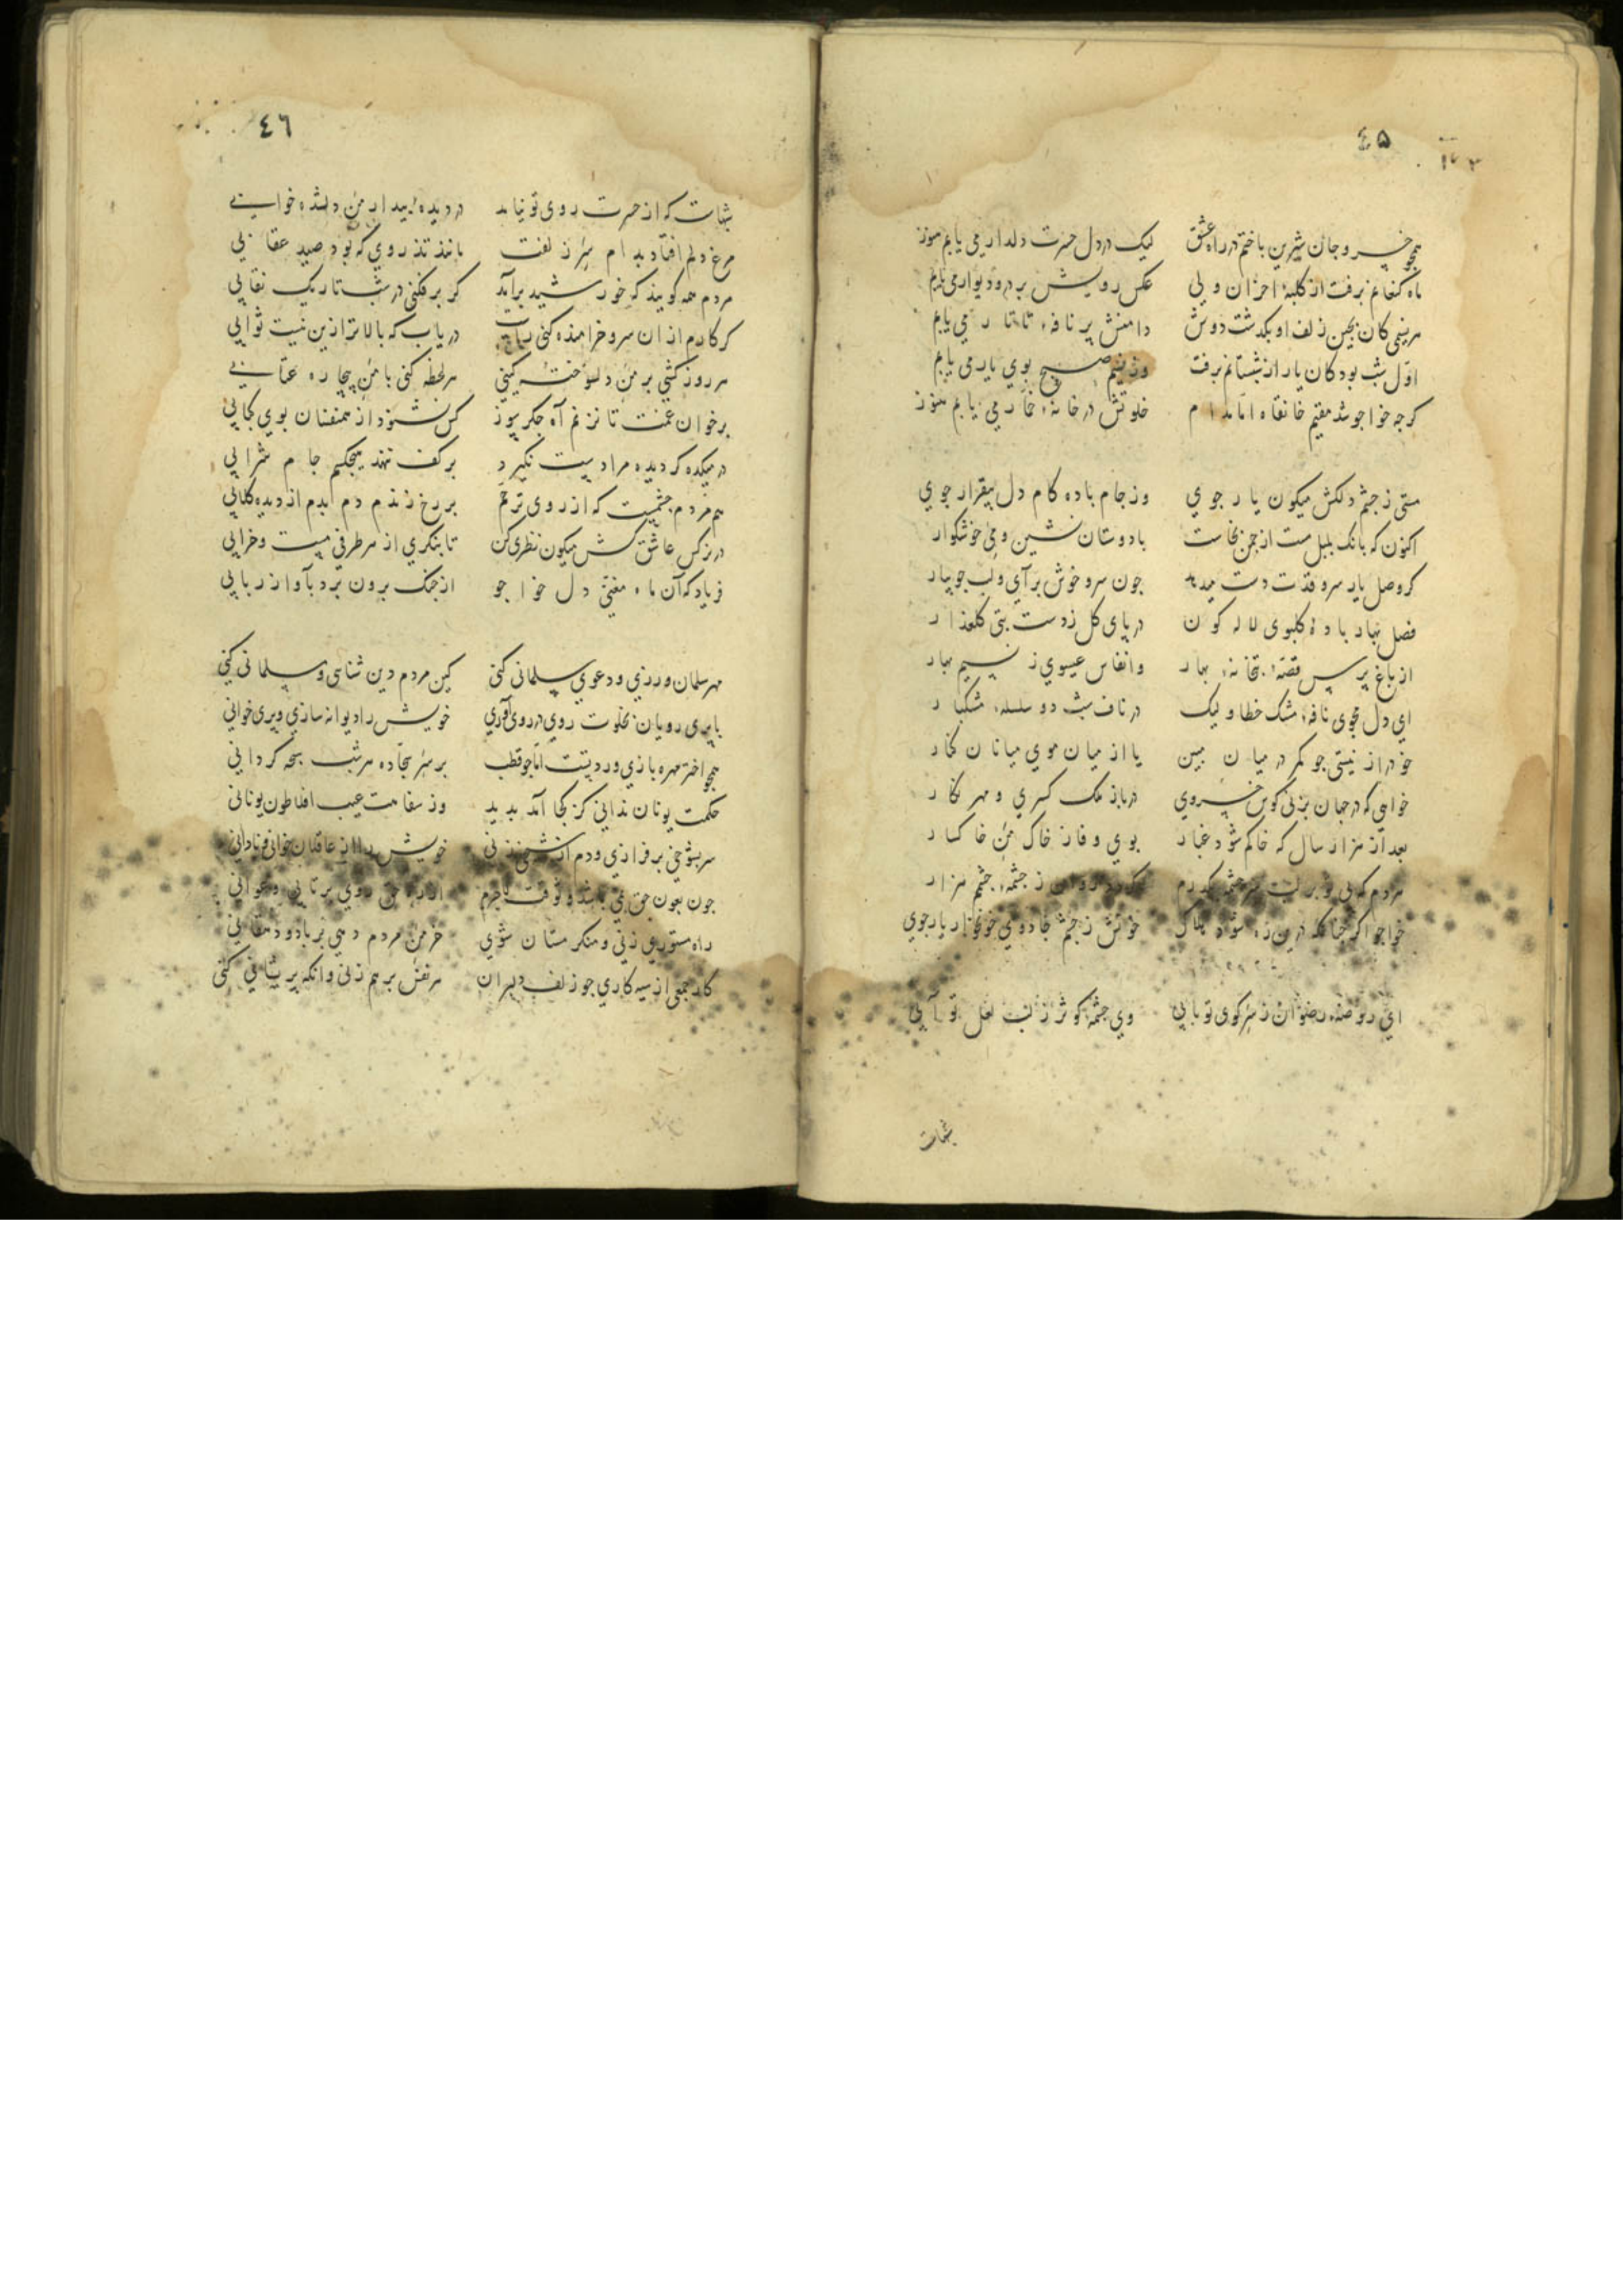 ٤۵
همچو خسرو جان شیرین باختم در راه عشق لیک در دل حسرت دلدار می یابم هنوز
ماه کنعانم برفت از کلبهٔ احزان ولی عکس رویش بر در و دیوار می یابم
هر نسیمی کان بچین زلف او بگذشت دوش دامنش پر نافهٔ تاتار می یابم
اوّل شب بود کان یار از شبستانم برفت وز نسیم صبح بوی یار می یابم
کرجه خواجو شد مقیم خانقاه امّا مدام خلوتش در خانهٔ خمّار می یابم هنوز
مستی ز جشم دلکش میکون یار جوی وز جام باده کام دل بیقرار جوی
اکنون که بانک بلبل مست از جمن بخاست با دوستان نشین و می خوشکوار
کر وصل یار سرو قدت دست میدهد جون سرو خوش برآی و لب جویبار
فصل بهار بادهٔ کلبوی لاله کون در پای کل ز دست بتی کلعذار
از باغ پرس قصّهٔ بتخانهٔ بهار وانفاس عیسوی ز نسیم بهار
ای دل مجوی نافهٔ مشک خطا و لیک در ناف شب دو سلسلهٔ مشکبار
خود را ز نیستی جو کمر در میان مبین یا از میان موی میانان کنار
خواهی که در جهان بزنی کوس خسروی درباز ملک کسری و مهر نکار
بعد از هزار سال که خاکم شود غبار بوی وفا ز خاک من خاکسار
مردم که بی تو بر لب سرجشمه بکذرم روان ز جشمهٔ جشم هزار
خواجو اکر جنانکه درین ره شود هلاک خونش ز جشم جادوی خونخوار یار جوی
ای روضهٔ رضوان ز سر کوی تو بابی وی جشمهٔ کوثر ز لب لعل تو آبی
شبهات
٤٦
شبهات که از حسرت روی تو نیاید در دیدهٔ بیدار من دلشده خوابی
مرغ دلم افتاد بدام سر زلفت مانند تذروی که بود صید عقابی
مردم همه کویند که خورشید برآمد کر برفکنی در شب تاریک نقابی
کر کارم از ان سرو خرامنده کنی راست دریاب که بالاتر ازین نیست ثوابی
هر روز کشی بر من دلسوخته کینی هر لحظه کنی با من بیچاره عتابی
بر خوان غمت تا نزنم آه جکرسوز کس نشنود از همنفسان بوی کبابی
در میکده کر دیده مرا دست نکیرد بر کف ننهد هیچکسم جام شرابی
هم مردم جشمست که از روی ترحّم بر رخ زندم دم بدم از دیده کلابی
در نرکس عاشق کش میکون نظری کن تا بنکری از هر طرفی مست و خرابی
فریاد که آن ماه مغنّی دل خواجو از جنک برون برد بآواز ربابی
مهر سلمان ورزی و دعوی سلمانی کنی کین مردم دین شناسی و مسلمانی کنی
با پری رویان بخلوت روی در روی آوری خویش را دیوانه سازی و پری خوانی
همجو اختر مهره بازی وردتست امّا جو قطب بر سر سجّاده هر شب سبحه کردانی
حکمت یونان ندانی کز کجا آمد بدید وز سفاهت عیب افلاطون یونانی
سر بشوخی برفرازی و دم از زنی خویش را از عاقلان خوانی و نادانی
جون بعون حق روی برتابی و عوانی
راه مستوری زنی و منکر مستان شوی خرمن مردم دهی بر باد و دهقانی
کار جمعی از سیه کاری جو زلف دلبران هر نفس بر هم زنی وانکه پریشانی کنی